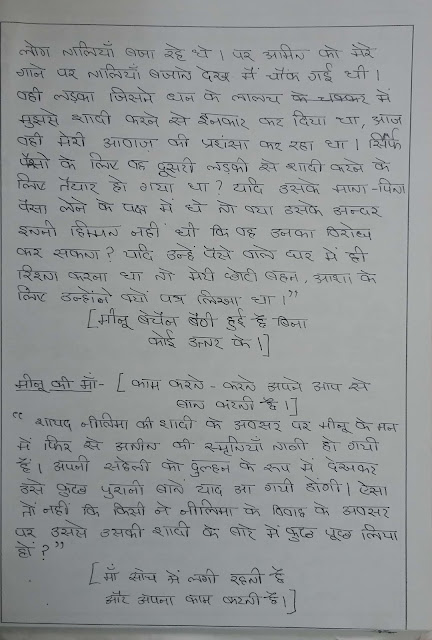 लोग तालियाँ बजा रहे थे। पर अमित को मेरे
गाने पर तालियाँ बजाते देख मैं चौंक गई थी।
वही लड़का जिसने धन के लालच के चक्कर में
मुझसे शादी करने से ईनकार कर दिया था, आज
वही मेरी आवाज़ की प्रशंसा कर रहा था। सिर्फ
पैसो के लिए वह दूसरी लड़की से शादी करने के
लिए तैयार हो गया था? यदि उसके माता-पिता
पैसा लेने के पक्ष में थे तो क्या उसके अन्दर
इतनी हिम्मत नहीं थी कि वह उनका विरोध
कर सकता? यदि उन्हें पैसे वाले घर में ही
रिश्ता करना था तो मेरी छोटी बहन, आशा के
लिए उन्होंने क्यों पत्र लिखा था।”
[मीनू बेचैन बैठी हुई है बिना
कोई उत्तर के।]
मीनू की माँ- [काम करते-करते अपने आप से
बात करती है।]
“शायद नीलिमा की शादी के अवसर पर मीनू के मन
में फिर से अतीत की स्मृतियाँ ताजी हो गयी
हैं। अपनी सहेली को दुल्हन के रूप में देखकर
उसे कुछ पुरानी बातें याद आ गयी होंगी। ऐसा
तो नहीं कि किसी ने नीलिमा के विवाह के अवसर
पर उससे उसकी शादी के बारे में कुछ पूछ लिया
हों?”
[माँ सोच में लगी रहती है
और अपना काम करती है।]